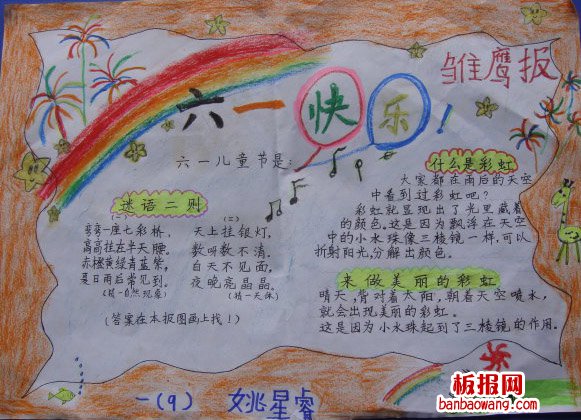 雏鹰报
六一快乐!
六一儿童节是:
谜语二则
(一)
弯弯一座七彩桥,
高高挂在半天腰。
赤橙黄绿青蓝紫,
夏日雨后常见到。
(猜一自然现象)
(二)
天上挂银灯,
数叫数不清。
白天不见面,
夜晚亮晶晶。
(猜一天体)
(答案在本报图画上找!)
什么是彩虹
大家都在雨后的天空
中看到过彩虹吧?
彩虹就显现出了光里藏着
的颜色。这是因为飘浮在天空
中的小水珠像三棱镜一样,可以
折射阳光,分解出颜色。
来做美丽的彩虹
晴天,背对着太阳,朝着天空喷水,
就会出现美丽的彩虹。
这是因为小水珠起到了三棱镜的作用。
一(9) 姚星睿
板报网
banbaowang.com